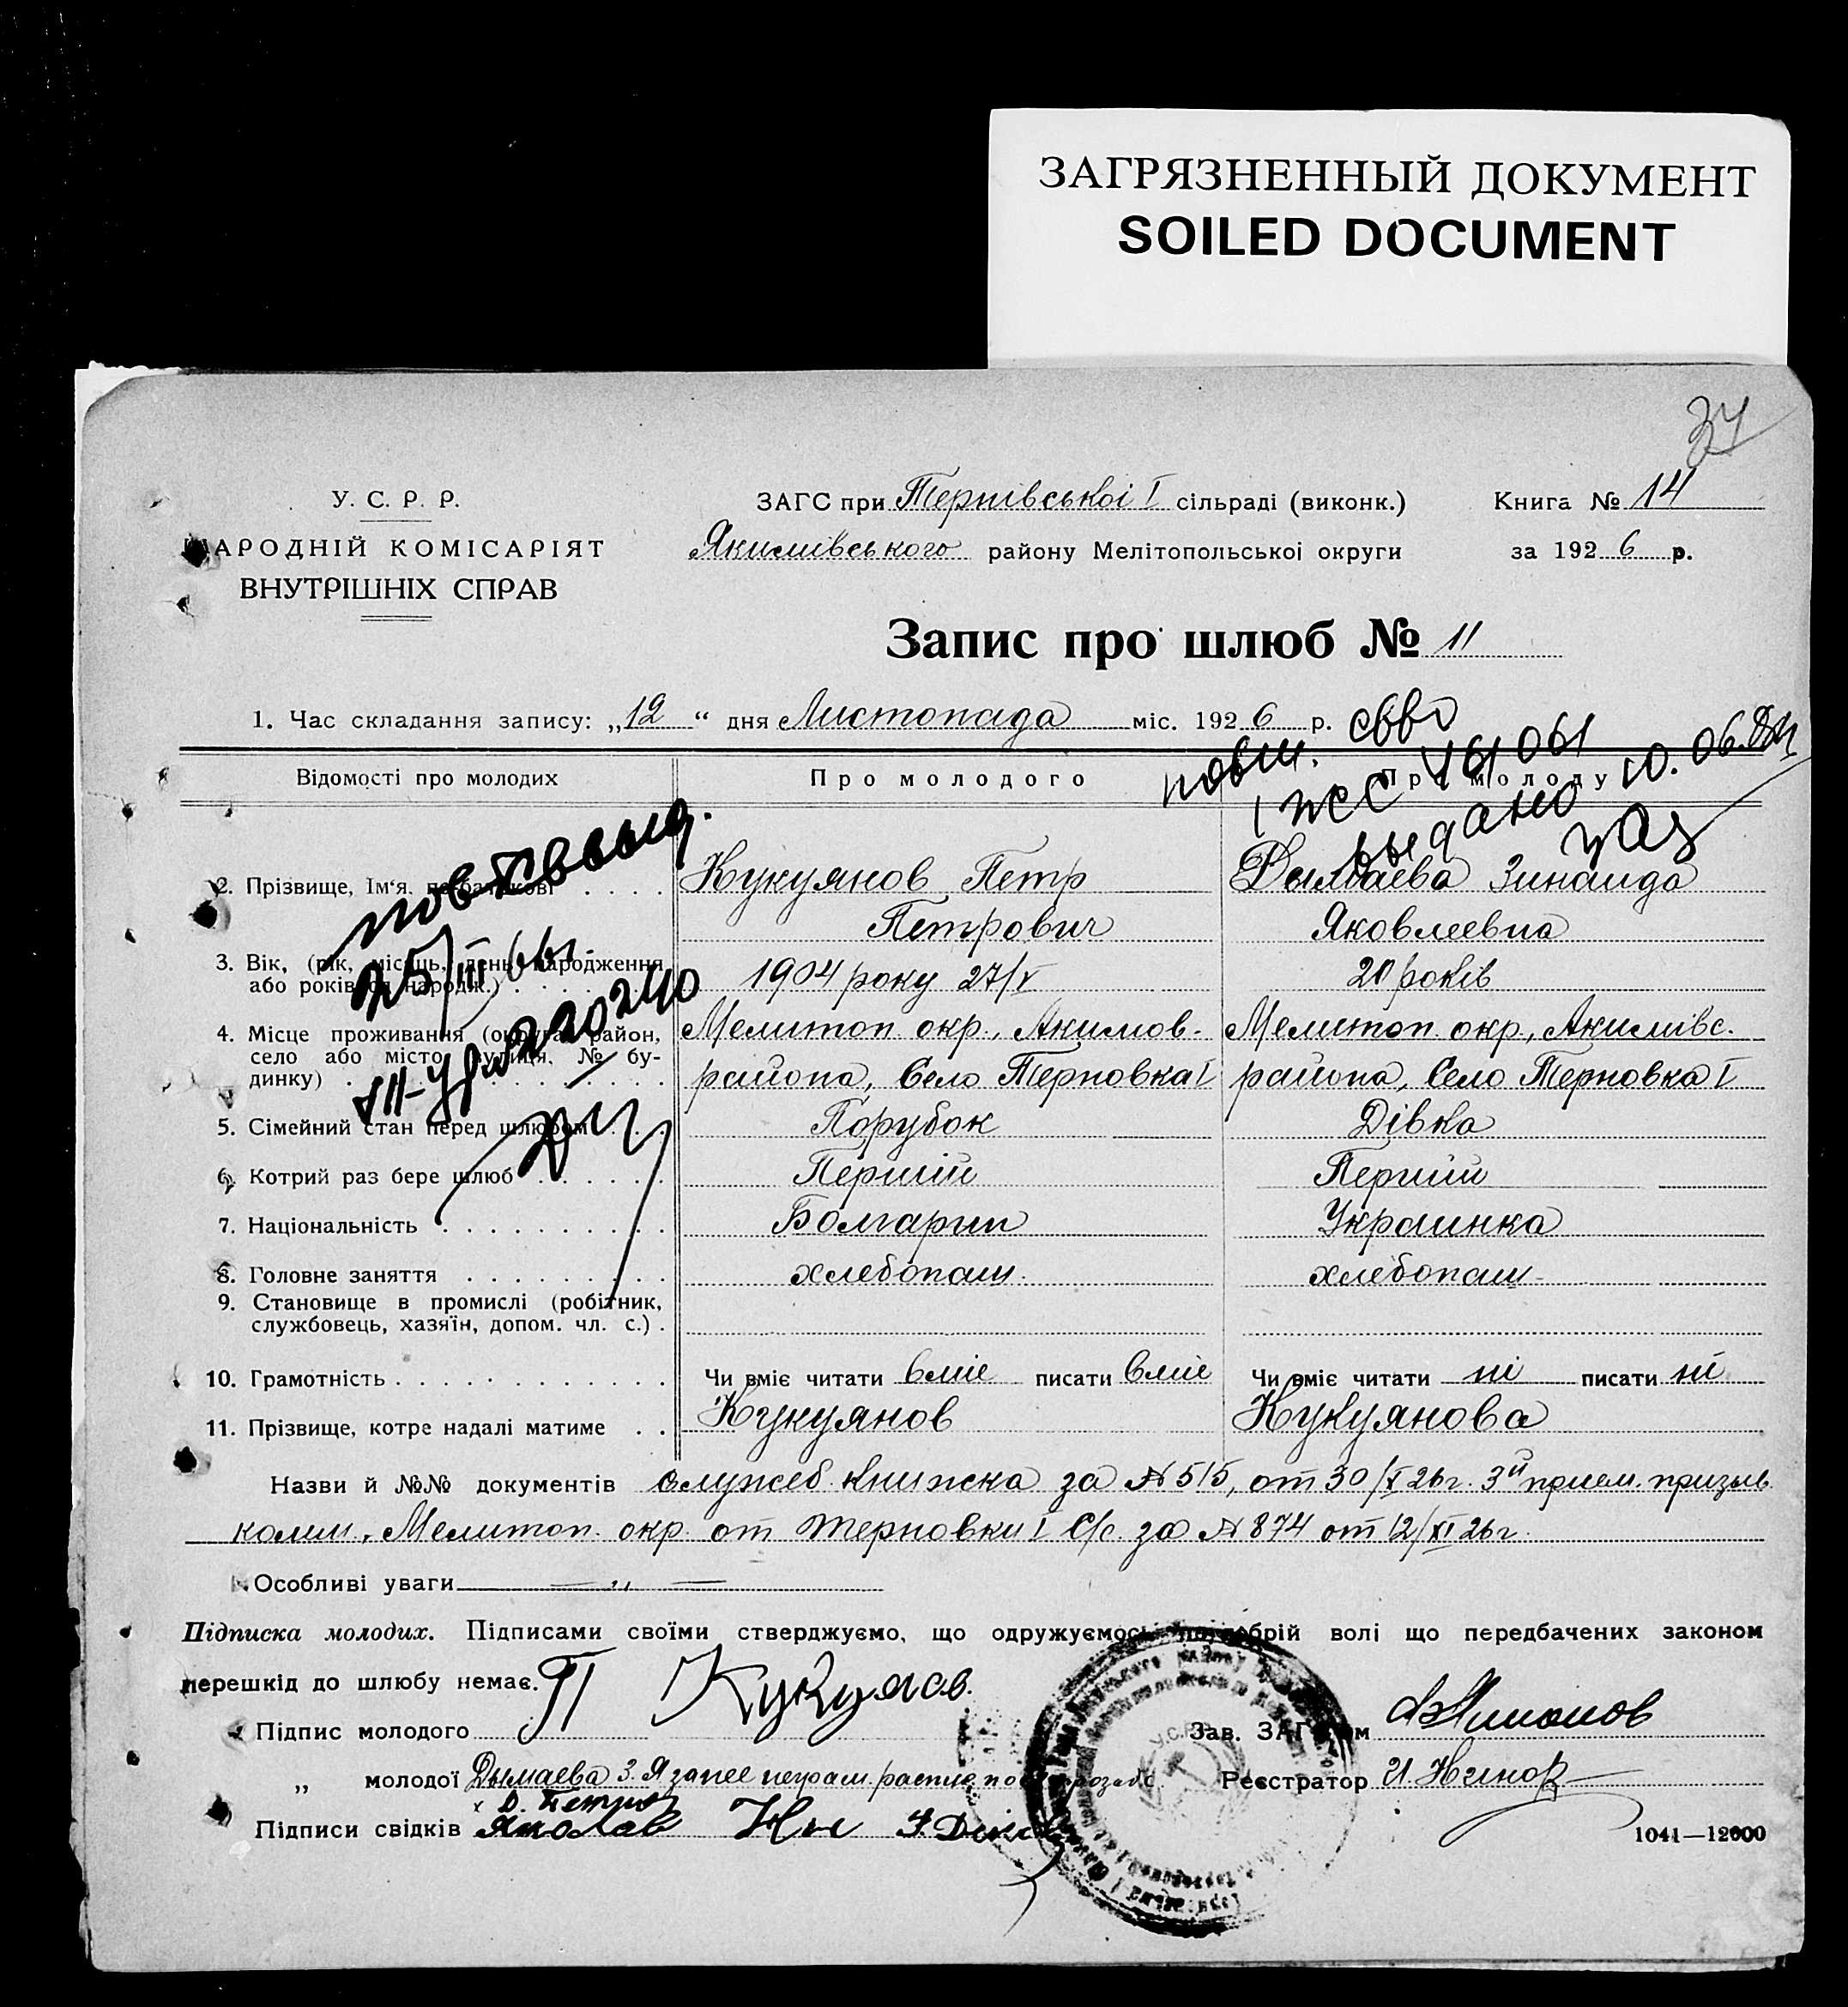 ЗАГРЯЗНЕННЫЙ ДОКУМЕНТ
SOILED DOCUMENT
37
У. С. Р. Р.
НАРОДНІЙ КОМІСАРІЯТ
ВНУТРІШНІХ СПРАВ
ЗАГС при Терпівської I сільраді (виконк.)
Якимівського району Мелітопольської округи
Книга № 14
за 1926 р.
Запис про шлюб № 11
1. Час складання запису: „12“ дня Листопада міс. 1926 р.
повт. свво
1 ЖС 161061
выдано 10.06.
Відомості про молодих
Про молодого
Про молоду
повт выд.
25/III 66г.
220240
2. Прізвище, Ім'я, по-батькові . . . . Кукуянов Петр Дымаева Зинаида
Петрович Яковлевна
3. Вік, (рік, місяць, день народження або років од народж.) . . . 1904 року 27/V 20 років
4. Місце проживання (округа, район, село або місто, вулиця, № будинку) . . .
Мелитоп. окр., Акимов- Мелитоп. окр., Акимівс.
района, Село Терновка I района, Село Терновка I
5. Сімейний стан перед шлюбом . . . Порубок Дівка
6. Котрий раз бере шлюб . . . . . . Перший Перший
7. Національність . . . . . . . . . . Болгарин Украинка
8. Головне заняття . . . . . . . . . хлебопаш. хлебопаш-
9. Становище в промислі (робітник, службовець, хазяїн, допом. чл. с.) .
10. Грамотність . . . . . . . . . . . . Чи вміє читати вміє писати вміє Чи вміє читати ні писати ні
11. Прізвище, котре надалі матиме . . Кукуянов Кукуянова
Назви й №№ документів служеб. книжка за № 515, от 30/X 26г. 3й прием. призыв
комш. Мелитоп. окр. от Терновки I С/с. за № 874 от 12/XI 26г.
Особливі уваги — „ —
Підписка молодих. Підписами своїми стверджуємо, що одружуємось по добрій волі що передбачених законом
перешкід до шлюбу немає.
Підпис молодого П Кукуянов.
Зав. ЗАГС'ом
„ молодої Дымаева З. Я
Реєстратор
Підписи свідків
У.С.Р.Р.
1041—12000